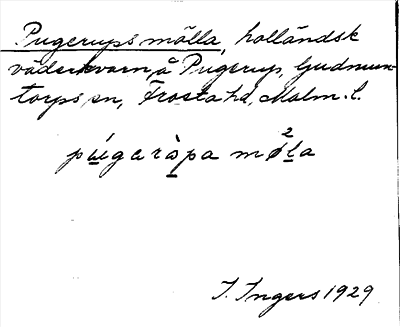 Pugerups mölla, holländsk
väderkvarn å Pugerup, Gudmun-
torps sn, Frosta hd, Malm. l.
púgaràpa mø²la
I. Ingers 1929